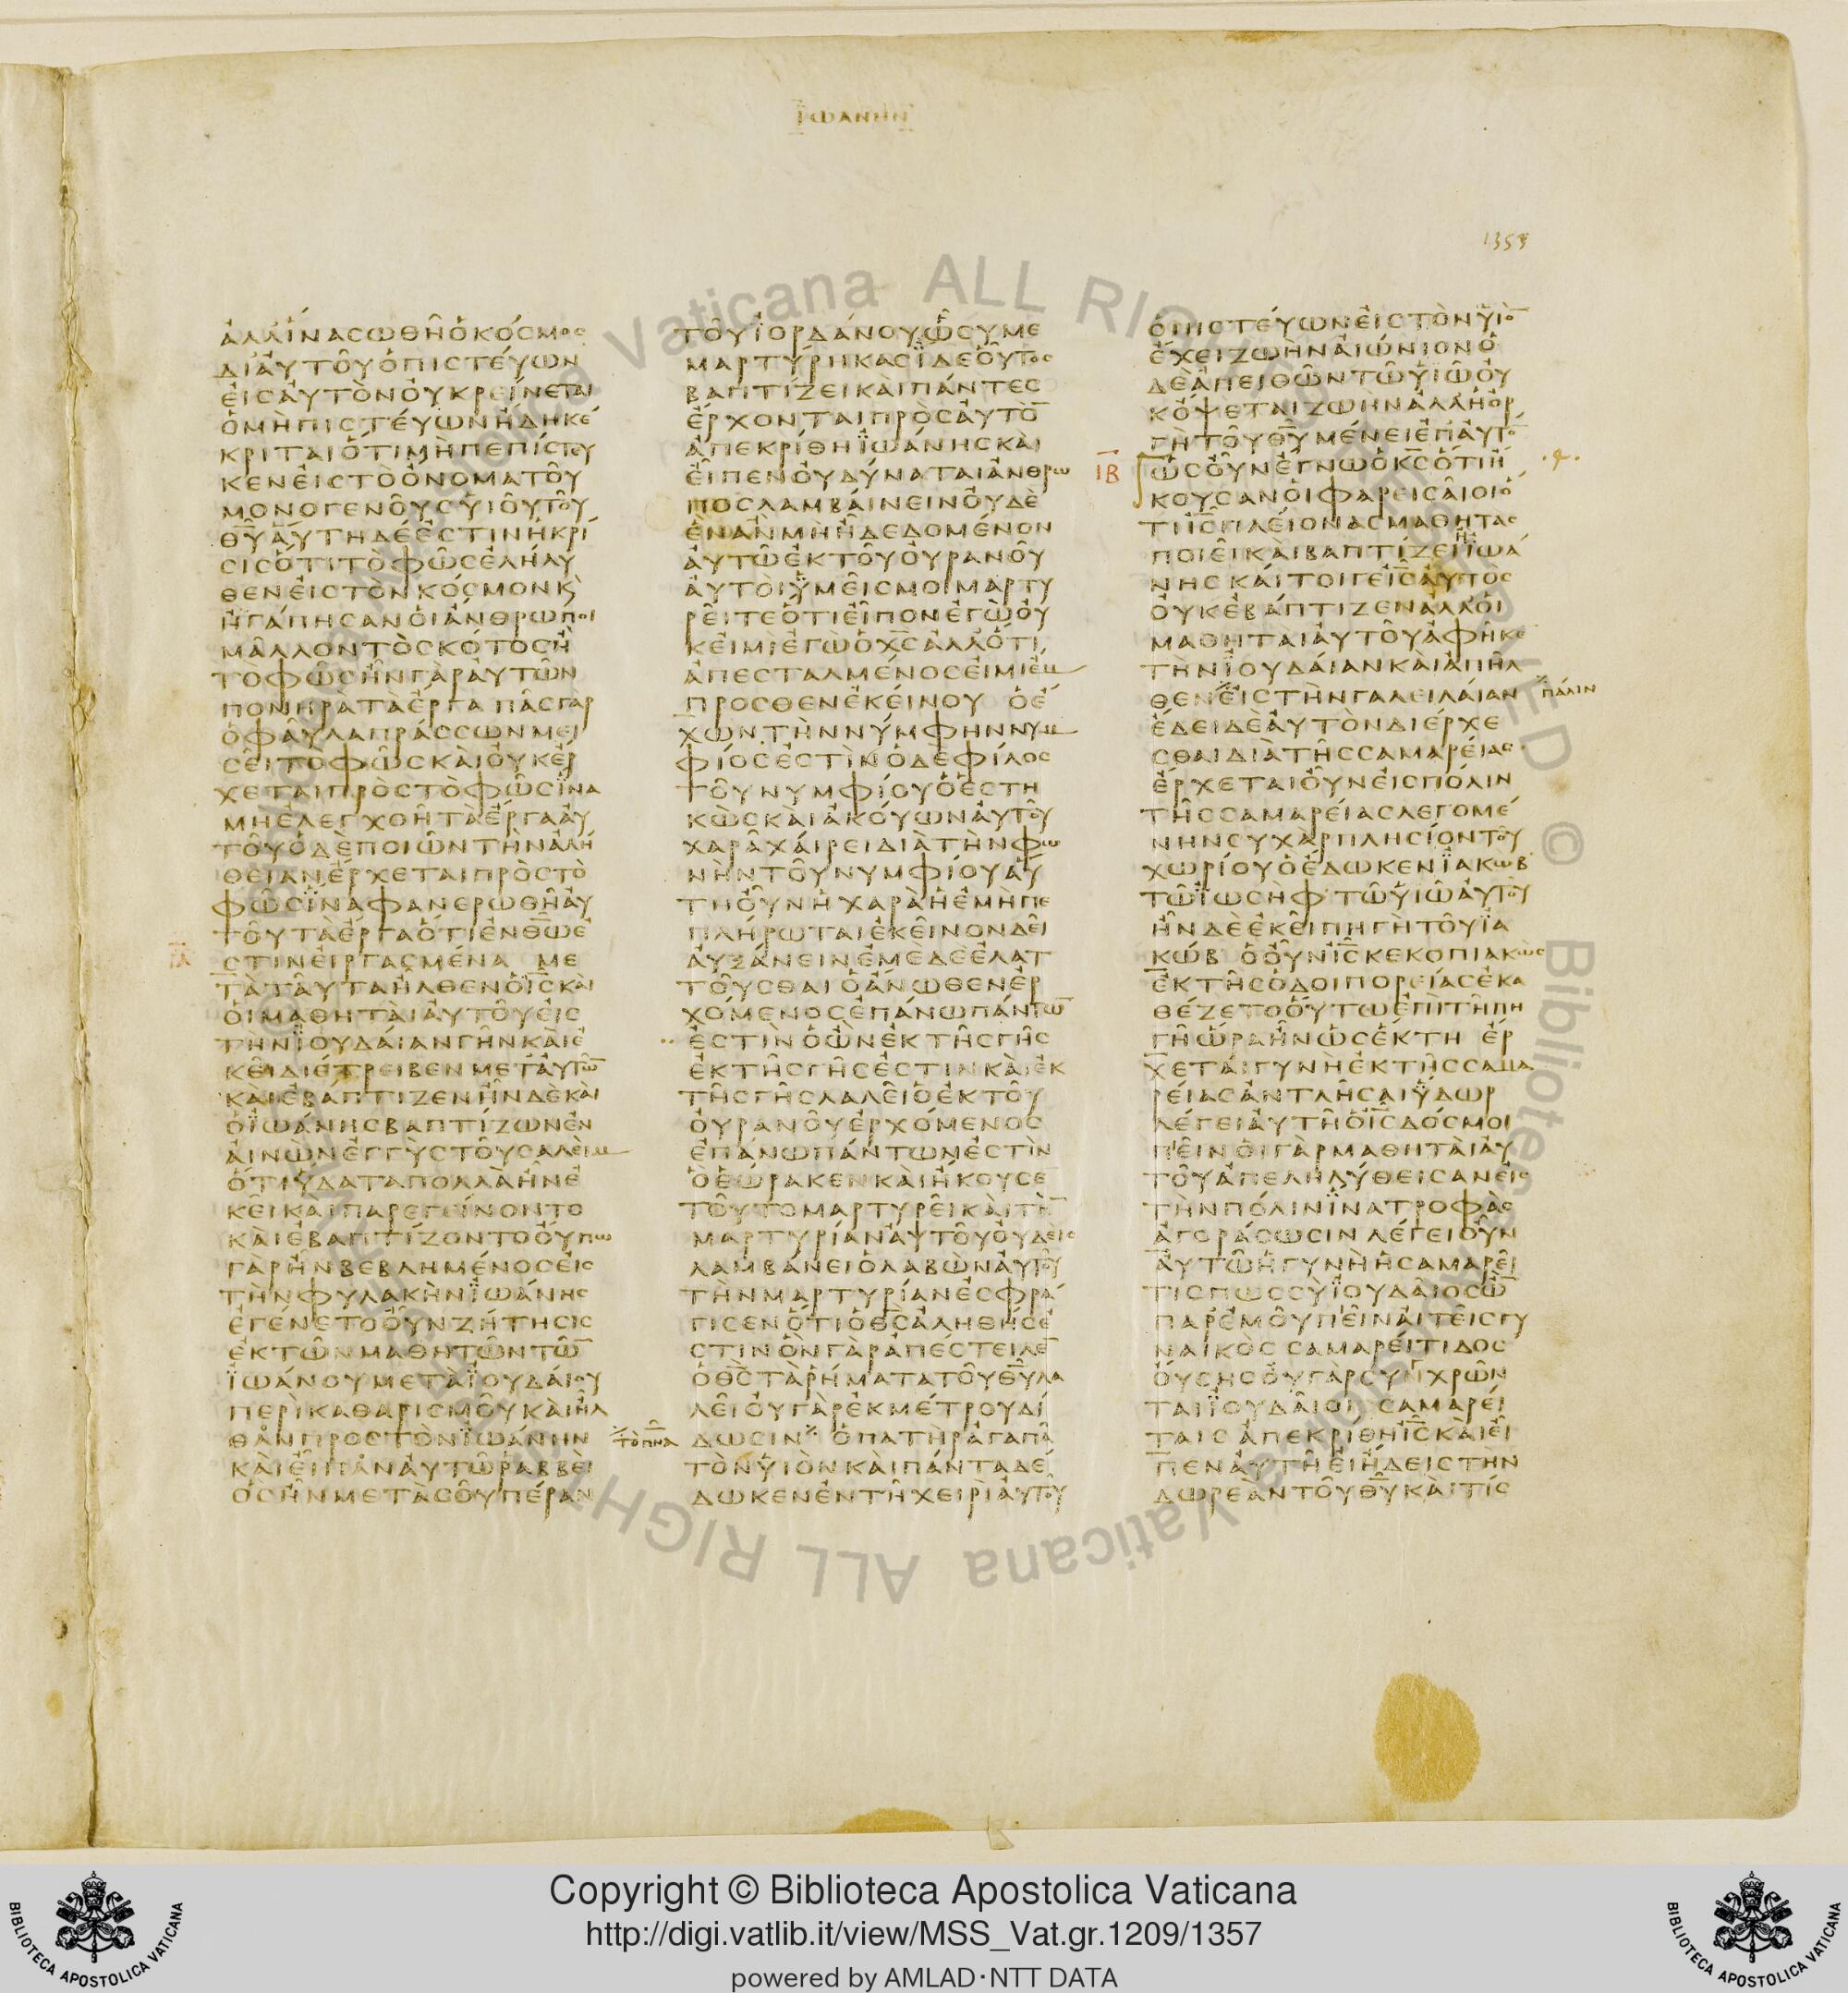 ΙΩΑΝΗΝ
1353
ἀλλ ἵνα σωθῆ ὁ κόσμος
δι αὐτοῦ ὁ πιστεύων
εἰς αὐτὸν οὐ κρείνεται
ὁ μὴ πιστεύων ἤδη κέ
κριται ὅτι μὴ πεπίστευ
κεν εἰς τὸ ὄνομα τοῦ
μονογενοῦς υἱοῦ τοῦ
θ̅υ̅ αὕτη δέ ἐστιν ἡ κρί
σις ὅτι τὸ φῶς ἐλήλυ
θεν εἰς τὸν κόσμον κ̀
ἠγάπησαν οἱ ἄνθρωποι
μᾶλλον τὸ σκότος ἢ
τὸ φῶς ἦν γὰρ αὐτῶν
πονηρὰ τὰ ἔργα πᾶς γὰρ
ὁ φαῦλα πράσσων μει
σεῖ τὸ φῶς καὶ οὐκ ἔρ
χεται πρὸς τὸ φῶς ἵνα
μὴ ἐλεγχθῆ τὰ ἔργα αὐ
τοῦ ὁ δὲ ποιῶν τὴν ἀλή
θειαν ἔρχεται πρὸς τὸ
φῶς ἵνα φανερωθῆ αὐ
τοῦ τὰ ἔργα ὅτι ἐν θ̅ω̅ ἐ
ΙΑ
στιν εἰργασμένα με
τὰ ταῦτα ἦλθεν ὁ ι̅ς̅ καὶ
οἱ μαθηταὶ αὐτοῦ εἰς
τὴν ἰουδαίαν γῆν καὶ ἐ
κεῖ διέτρειβεν μετ αὐτῶ̅
καὶ ἐβάπτιζεν ἦν δὲ καὶ
ὁ ἰωάνης βαπτίζων ἐν
αἰνὼν ἐγγὺς τοῦ σαλεὶμ
ὅτι ὕδατα πολλὰ ἦν ἐ
κεῖ καὶ παρεγείνοντο
καὶ ἐβαπτίζοντο οὔπω
γὰρ ἦν βεβλημένος εἰς
τὴν φυλακὴν ἰωάνης
ἐγένετο οὖν ζήτησις
ἐκ τῶν μαθητῶν τῶ̅
ἰωάνου μετὰ ἰουδαίου
περὶ καθαρισμοῦ καὶ ἦλ
θαν πρὸς τὸν ἰωάνην
καὶ εἶπαν αὐτῶ ραββεὶ
ὃς ἦν μετὰ σοῦ πέραν
τοῦ ἰορδάνου ὧ σὺ με
μαρτύρηκας ἴδε οὗτος
βαπτίζει καὶ πάντες
ἔρχονται πρὸς αὐτό̅
ἀπεκρίθη ἰωάνης καὶ
εἶπεν οὐ δύναται ἄνθρω
πος λαμβάνειν οὐδὲ
ἓν ἂν μὴ ἦ δεδομένον
αὐτῶ ἐκ τοῦ οὐρανοῦ
αὐτοὶ ὑμεῖς μοι μαρτυ
ρεῖτε ὅτι εἶπον ἐγὼ οὐ
κ εἰμὶ ἐγὼ ὁ χ̅ς̅ ἀλλ ὅτι
ἀπεσταλμένος εἰμὶ ἔμ
προσθεν ἐκείνου ὁ ἔ
χων τὴν νύμφην νυμ
φίος ἐστὶν ὁ δὲ φίλος
τοῦ νυμφίου ὁ ἑστη
κὼς καὶ ἀκούων αὐτοῦ
χαρᾶ χαίρει διὰ τὴν φω
νὴν τοῦ νυμφίου αὕ
τη οὖν ἡ χαρὰ ἡ ἐμὴ πε
πλήρωται ἐκεῖνον δεῖ
αὐξάνειν ἐμὲ δὲ ἐλατ
τοῦσθαι ὁ ἄνωθεν ἐρ
χόμενος ἐπάνω πάντω̅
ἐστὶν ὁ ὢν ἐκ τῆς γῆς
ἐκ τῆς γῆς ἐστιν καὶ ἐκ
τῆς γῆς λαλεῖ ὁ ἐκ τοῦ
οὐρανοῦ ἐρχόμενος
ἐπάνω πάντων ἐστὶν
ὃ ἑώρακεν καὶ ἤκουσε̅
τοῦτο μαρτυρεῖ καὶ τὴ̅
μαρτυρίαν αὐτοῦ οὐδεὶς
λαμβάνει ὁ λαβὼν αὐτοῦ
τὴν μαρτυρίαν ἐσφρά
γισεν ὅτι ὁ θ̅ς̅ ἀληθής ἐ
στιν ὃν γὰρ ἀπέστειλε̅
ὁ θ̅ς̅ τὰ ῥήματα τοῦ θ̅υ̅ λα
λεῖ οὐ γὰρ ἐκ μέτρου δί
τὸ π̅ν̅α̅
δωσιν ὁ πατὴρ ἀγαπᾶ
τὸν υἱὸν καὶ πάντα δέ
δωκεν ἐν τῆ χειρὶ αὐτοῦ
ὁ πιστεύων εἰς τὸν υἱὸ̅
ἔχει ζωὴν αἰώνιον ὁ
δὲ ἀπειθῶν τῶ υἱῶ οὐ
κ ὄψεται ζωὴν ἀλλ ἡ ὀρ
γὴ τοῦ θ̅υ̅ μένει ἐπ αὐτὸ̅
ΙΒ
ὡς οὖν ἔγνω ὁ κ̅ς̅ ὅτι ἤ
κουσαν οἱ φαρεισαῖοι ὅ
τι ι̅ς̅ πλείονας μαθητὰς
ποιεῖ καὶ βαπτίζει ἢ ἰωά
νης καίτοιγε ι̅ς̅ αὐτὸς
οὐκ ἐβάπτιζεν ἀλλ οἱ
μαθηταὶ αὐτοῦ ἀφῆκε
τὴν ἰουδαίαν καὶ ἀπῆλ
θεν εἰς τὴν γαλειλαίαν
πάλιν
ἔδει δὲ αὐτὸν διέρχε
σθαι διὰ τῆς σαμαρείας
ἔρχεται οὖν εἰς πόλιν
τῆς σαμαρείας λεγομέ
νην συχὰρ πλησίον τοῦ
χωρίου ὃ ἔδωκεν ἰακὼβ
τῶ ἰωσὴφ τῶ υἱῶ αὐτοῦ
ἦν δὲ ἐκεῖ πηγὴ τοῦ ἰα
κώβ ὁ οὖν ι̅ς̅ κεκοπιακὼς
ἐκ τῆς ὁδοιπορείας ἐκα
θέζετο οὕτω ἐπὶ τῆ πη
γῆ ὥρα ἦν ὡς ἕκτη ἔρ
χεται γυνὴ ἐκ τῆς σαμα
ρείας ἀντλῆσαι ὕδωρ
λέγει αὐτῆ ὁ ι̅ς̅ δός μοι
πεῖν οἱ γὰρ μαθηταὶ αὐ
τοῦ ἀπεληλύθεισαν εἰς
τὴν πόλιν ἵνα τροφὰς
ἀγοράσωσιν λέγει οὖν
αὐτῶ ἡ γυνὴ ἡ σαμαρεῖ
τις πως σὺ ἰουδαῖος ὢ̅
παρ ἐμοῦ πεῖν αἰτεῖς γυ
ναικὸς σαμαρείτιδος
οὔσης οὐ γὰρ συγχρῶν
ται ἰουδαῖοι σαμαρεί
ταις ἀπεκρίθη ι̅ς̅ καὶ εἶ
πεν αὐτῆ εἰ ἤδεις τὴν
δωρεὰν τοῦ θ̅υ̅ καὶ τίς
Copyright © Biblioteca Apostolica Vaticana
http://digi.vatlib.it/view/MSS_Vat.gr.1209/1357
powered by AMLAD·NTT DATA
BIBLIOTECA APOSTOLICA VATICANA
BIBLIOTECA APOSTOLICA VATICANA